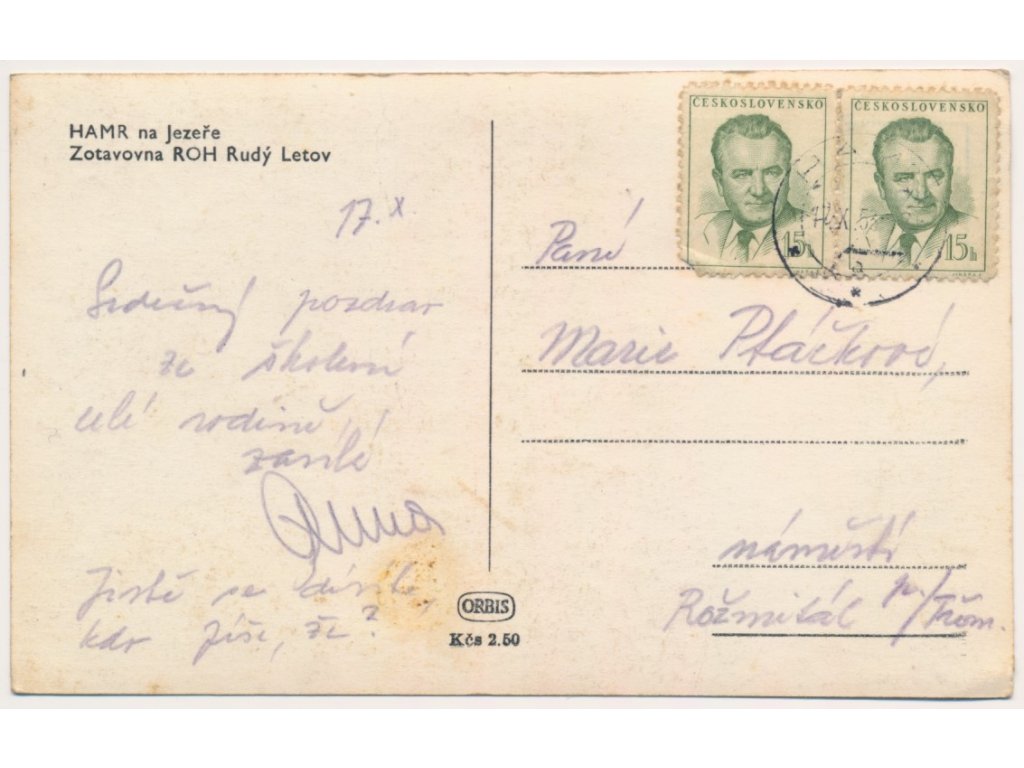 HAMR na Jezeře
Zotavovna ROH Rudý Letov
17.X.
Srdečný pozdrav
ze školení
celé rodině
zasílá
Anna
Jistě se divíte,
kdo píše, že?
ORBIS
Kčs 2.50
ČESKOSLOVENSKO
15h
ČESKOSLOVENSKO
15h
Paní
Marie Ptáčková,
náměstí
Rožmitál p/Třem.